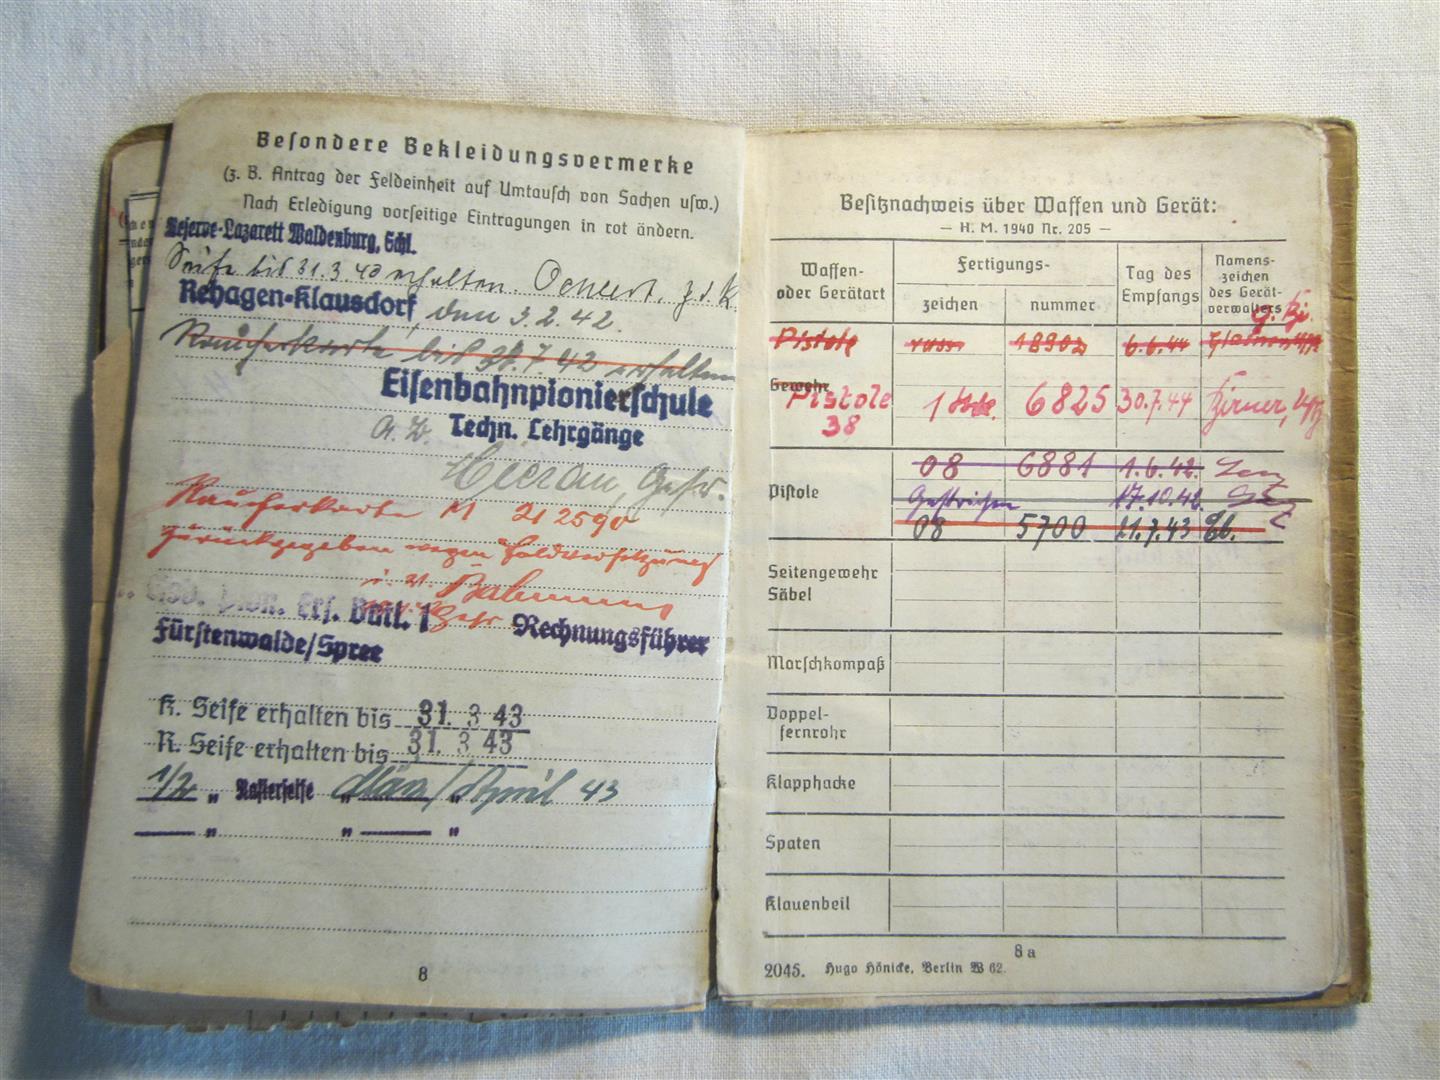 Besondere Bekleidungsvermerke
(z. B. Antrag der Feldeinheit auf Umtausch von Sachen usw.)
Nach Erledigung vorseitige Eintragungen in rot ändern.
Reserve-Lazarett Waldenburg, Schl.
Seife bis 31.3.43 erhalten.
Rehagen-Klausdorf, den 3.2.42.
Raucherkarte bis 31.7.42 erhalten
Eisenbahnpionierschule
Techn. Lehrgänge
Gefr.
Raucherkarte M 212590
zurückgegeben wegen Feldversetzung
Ers. Batl. 1 Rechnungsführer
Fürstenwalde/Spree
K. Seife erhalten bis 31. 3 43
R. Seife erhalten bis 31. 3 43
1/2 " Rasierseife " März/April " 43
" " "
8
Besitznachweis über Waffen und Gerät:
— H. M. 1940 Nr. 205 —
Waffen- oder Gerätart
Fertigungs-
zeichen
nummer
Tag des Empfangs
Namens-zeichen des Gerät-verwalters
Pistole russ 18902 6.6.44
Gewehr
Pistole 38 6825 30.7.44
08 6881 1.6.42.
Pistole Gestrichen 17.10.42.
08 5700 21.7.43
Seitengewehr
Säbel
Marschkompaß
Doppel-
fernrohr
Klapphacke
Spaten
Klauenbeil
8a
2045. Hugo Hönicke, Berlin W 62.